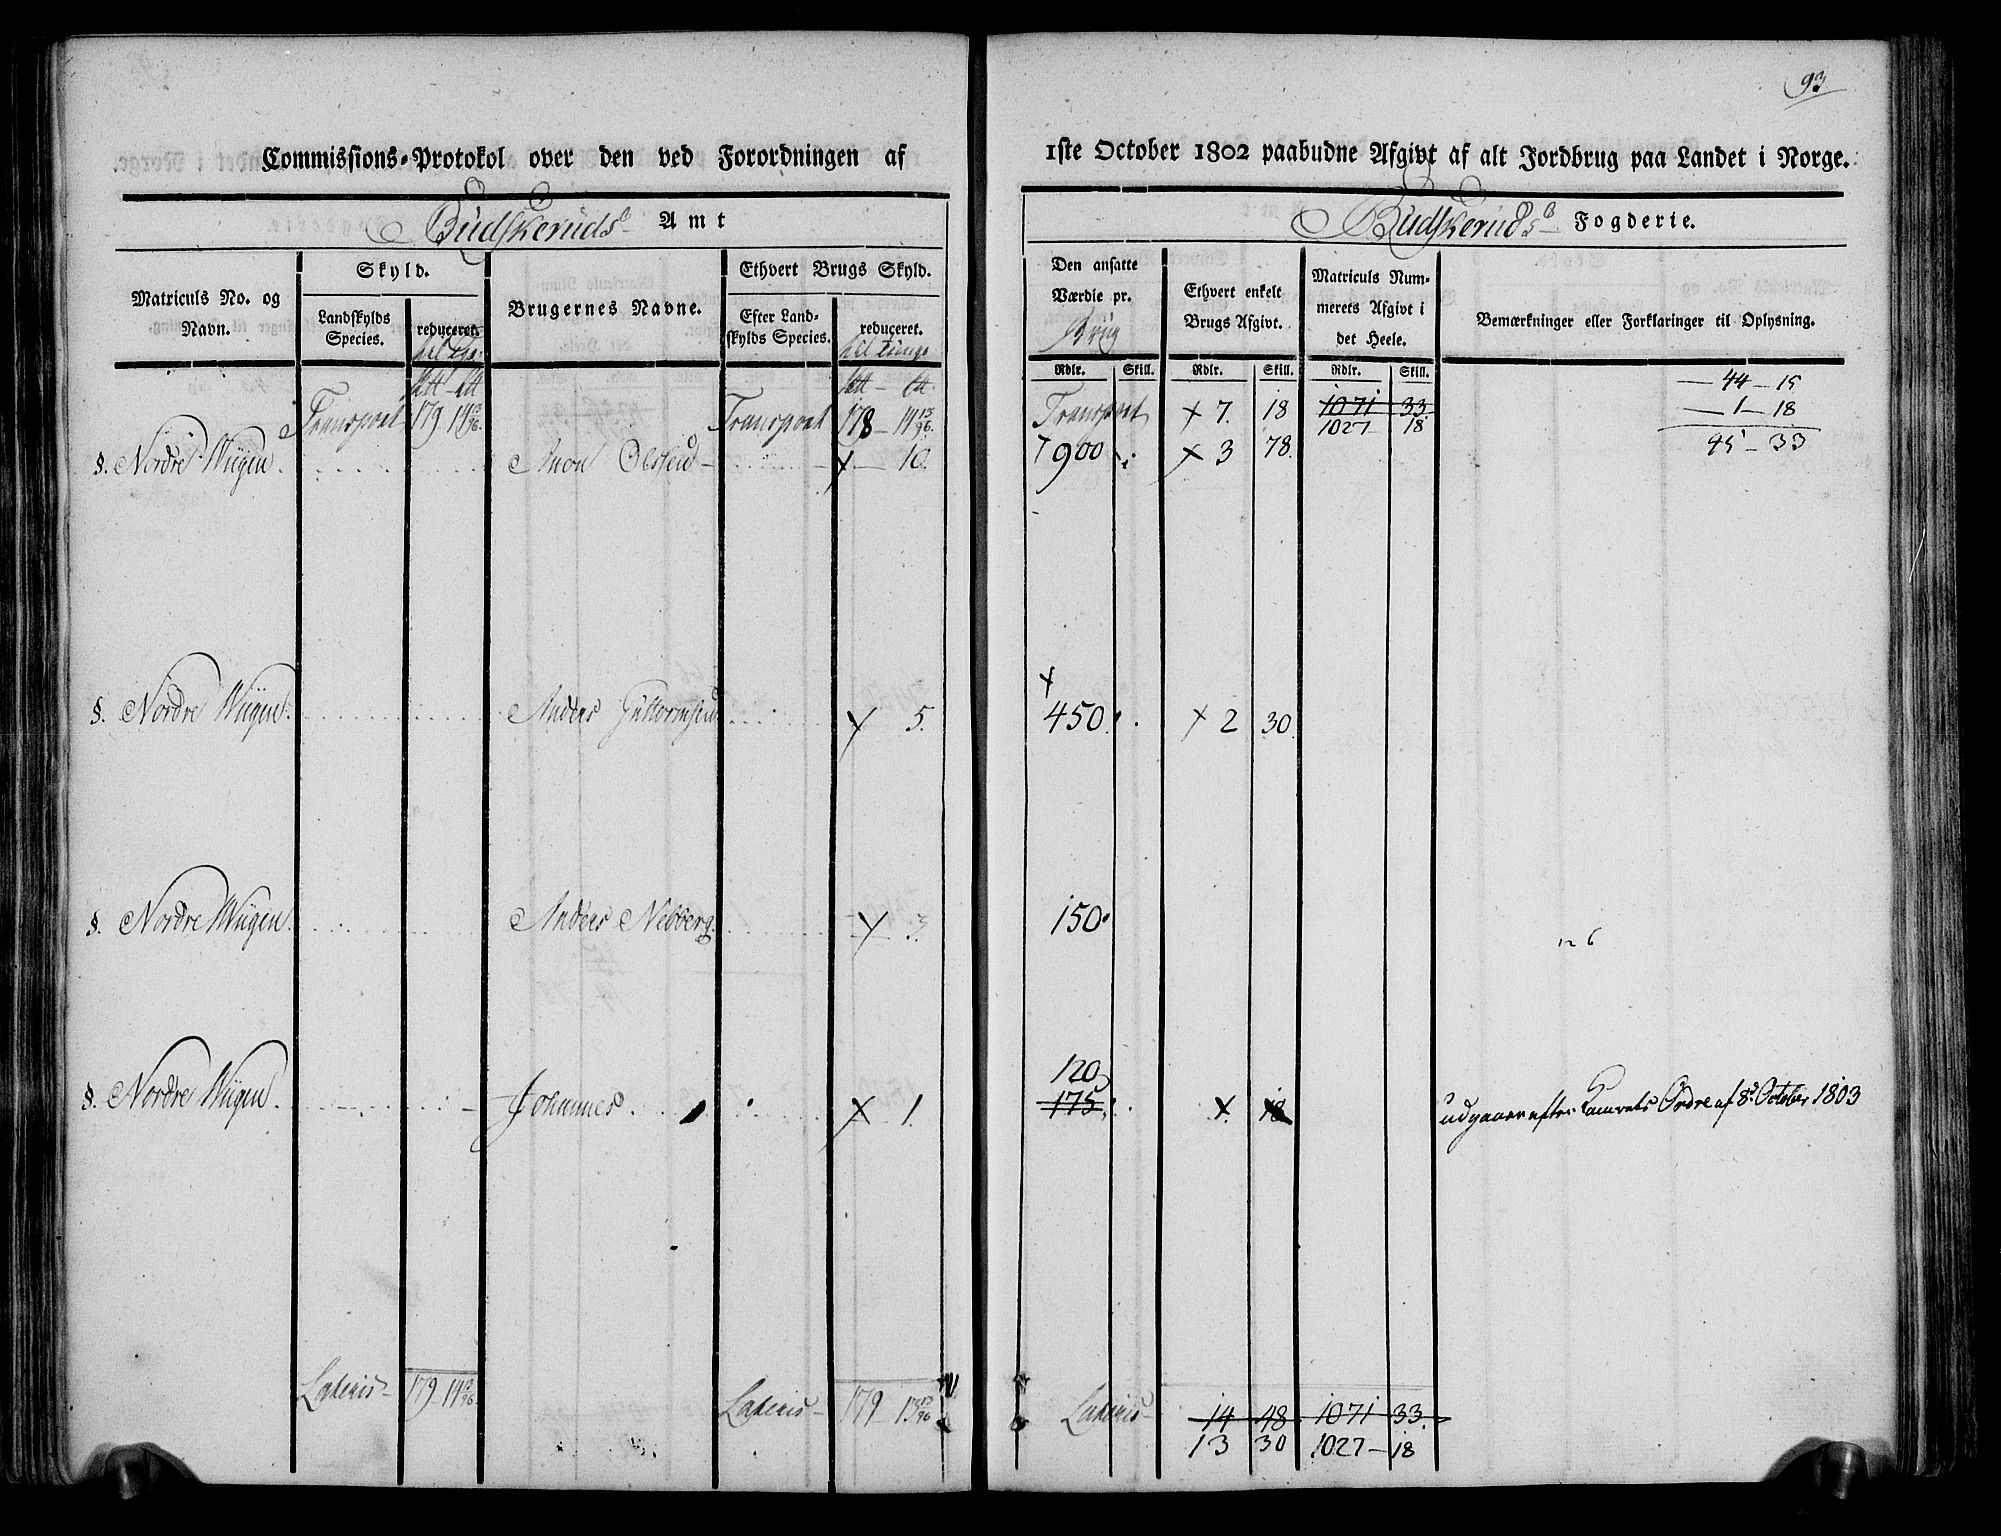 93
Commissions-Protokol over den ved Forordningen af
1ste October 1802 paabudne Afgivt af alt Jordbrug paa Landet i Norge.
Budskeruds Amt
Budskeruds Fogderie.
Matriculs No. og Navn.
Skyld.
Landskylds Species.
reduceret.
Brugernes Navne.
Ethvert Brugs Skyld.
Efter Landskylds Species.
reduceret.
til Tunge
Den ansatte Værdie pr.
Brug
Ethvert enkelt Brugs Afgivt.
Matriculs Nummerets Afgivt i det Heele.
Bemærkninger eller Forklaringer til Oplysning.
Rdlr. Skill. Rdlr. Skill. Rdlr. Skill.
Transport 179 14 13/96 Transport 178 14 13/96 Transport x 7. 18 1071 33.
1027 18
44 - 15
1 - 18
45 - 33
§. Nordre Wiigen Olsen x 10. 900 x 3 78.
§. Nordre Wiigen Anders Guttormsen x 5. x 450 x 2 30.
§. Nordre Wiigen Anders Nebberg x 3. 150.
6
§. Nordre Wiigen Johannes x 1. 120
175 x 18 udgaaer efter Camrets Ordre af 8de October 1803
Lateris 179 14 13/96 Lateris 179 13 13/96 Lateris 14 48 1071 33.
13 30 1027 - 18